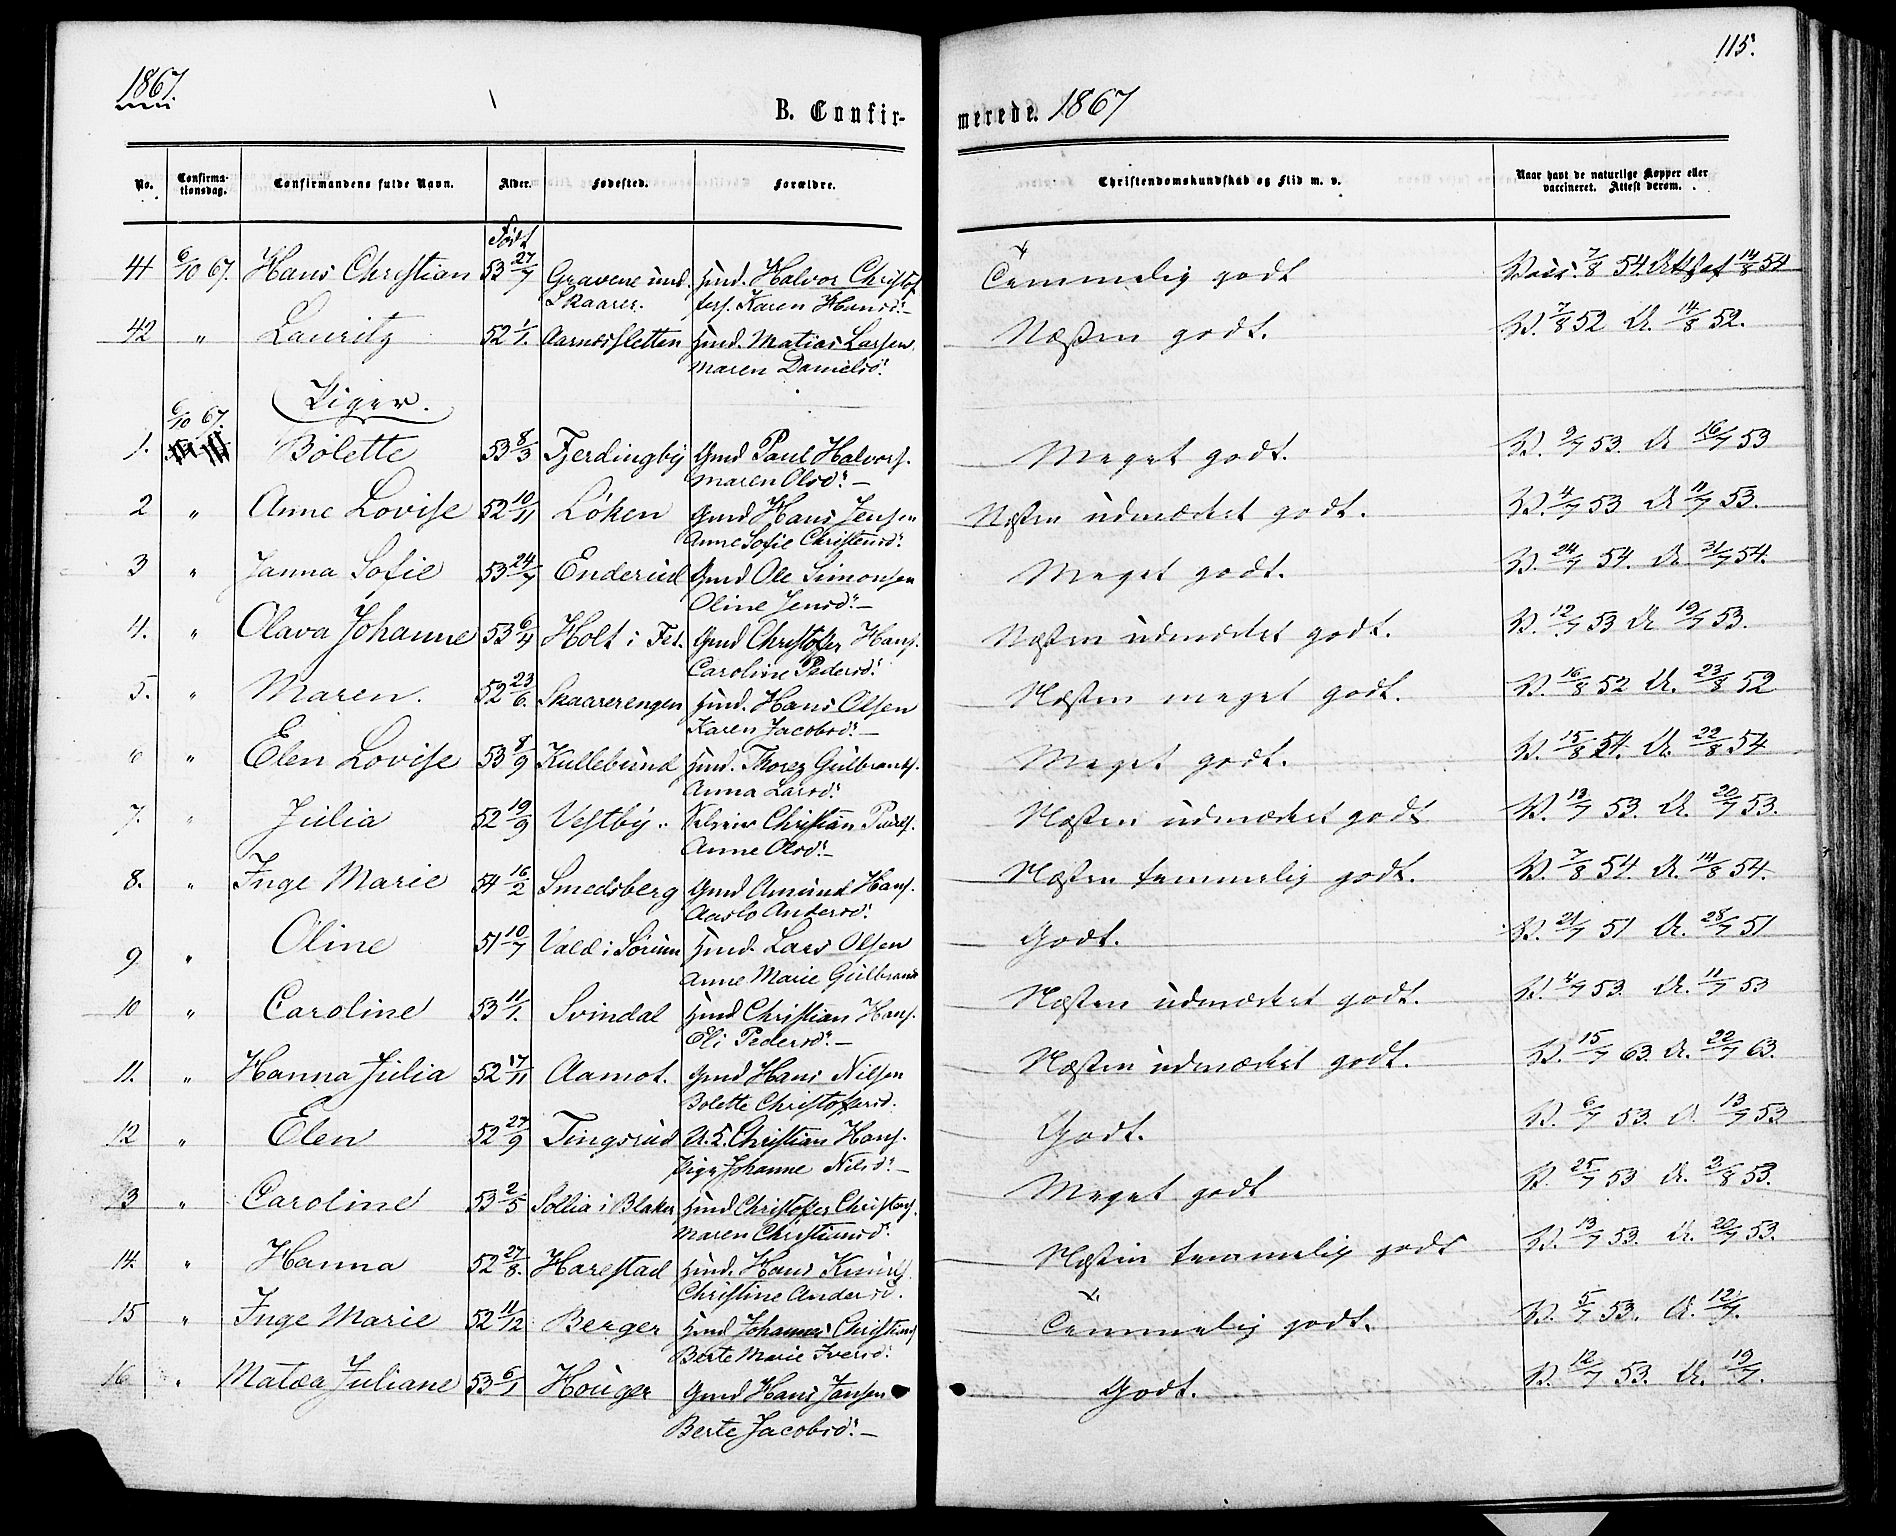 1867.
115.
B. Confir-
merede. 1867
No.
Confirma-
tionsdag.
Confirmandens fulde Navn.
Alder.
Fødested.
Forældre.
Christendomskundskab og Flid m. v.
Naar havt de naturlige Kopper eller
vaccineret. Attest derom.
Født
41 6/10 67. Hans Christian 53 27/7 Gravene und. Huusmd. Halvor Christof Temmelig godt Vacc. 7/8 54. Att af 14/8 54
Skaarer. fers. Karen Hansd:
42 " Lauritz 52 1/1. Aarnæssletten Huusmd. Matias Larsen Næsten godt. V. 7/8 52 A. 14/8 52.
Maren Danielsd:
Piger.
6/10 67.
1. Bolette 53 8/3 Fjerdingby Gmd Paul Halvors. Meget godt. V. 9/7 53. A 16/7 53
Maren Olsd:
2 " Anne Lovise 52 10/11 Løken Gmd Hans Jensen Næsten udmærket godt. V. 4/7 53 A 11/7 53.
Anne Sofie Christensd:
3 " Janna Sofie 53 24/7 Enderud Gmd Ole Simonsen Meget godt. V. 24/7 54. A. 31/7 54.
Oline Jensd:
4. " Olava Johanne 53 6/4 Holt i Fet. Gmd Christofer Hans. Næsten udmærket godt. V. 12/7 53 A 19/7 53.
Caroline Pedersd:
5. " Maren. 52 23/6. Skaarerengen Hmd. Hans Olsen Næsten meget godt. V. 16/8 52 A. 23/8 52
Karen Jacobsd:
6 " Elen Lovise 53 8/9 Kullebund Hmd. Thorez Gulbrands. Meget godt. V. 15/8 54. A. 22/8 54
Anna Larsd:
7. " Julia 52 19/9 Vestby. Christian Peders. Næsten udmærket godt V. 13/7 53. A. 20/7 53.
Anne Olsd:
8. " Inge Marie 54 16/2 Smedsberg Gmd Amund Hans. Næsten temmelig godt. V. 7/8 54. A. 14/8 54.
Aaslo Andersd:
9 " Oline 51 10/7 Vald i Sørum Hmd. Lars Olsen Godt. V. 21/7 51 A. 28/7 51
Anne Marie Gulbrand
10 " Caroline 53 11/1. Svindal Hmd Christian Hans. Næsten udmærket godt. V. 4/7 53. A. 11/7 53
Eli Pedersd:
11. " Hanna Julia 52 17/11 Aamot. Gmd Hans Nilsen Næsten udmærket godt. V. 15/7 63. A. 22/7 63.
Bolette Christofersd.
12 " Elen 52 27/9 Tingsrud U. K. Christian Hans. Godt. V. 6/7 53. A 13/7 53
Pige Johanne Nilsd:
13 " Caroline 53 2/5 Sollia i Blaker Hmd Christofer Christens. Meget godt V. 25/7 53 A. 2/8 53.
Maren Christiansd:
14. " Hanna 52 27/8. Harestad Hmd. Hans Knuds. Næsten temmelig godt V. 13/7 53. A. 20/7 53.
Christine Andersd.
15 " Inge Marie 52 11/12 Berger Hmd Johannes Christians Temmelig godt. V. 5/7 53. A. 12/7.
Berte Marie Iversd:
16 " Matea Juliane 53 6/1 Houger Gmd Hans Jansen Godt. V. 12/7 53. A. 19/7.
Berte Jacobsd: